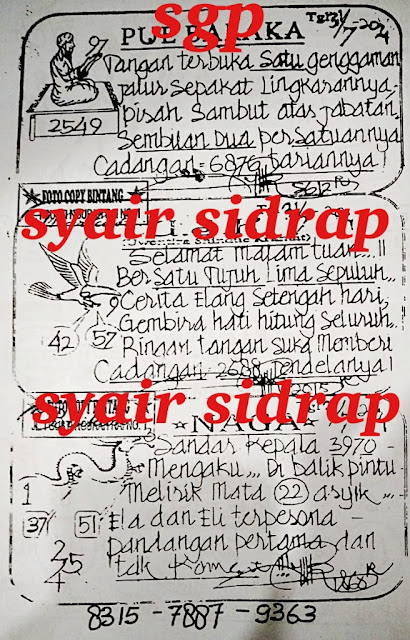 sgp
PUE
Tgr 31/7-2024
Tangan terbuka Satu genggaman
jalur Sepakat Lingkarannya
pisah Sambut atas jabatan
Sembilan Dua persatuannya
Cadangan = 6876 bariannya!
2549
FOTO COPY BINTANG
syair sidrap
Selamat malam tuan...!!
BerSatu Tujuh Lima Sepuluh...
Cerita Elang Setengah hari,
Gembira hati hitung Seluruh.
Ringan tangan suka Memberi
Cadangan 2688 Jendelanya!
42 57
syair sidrap
NAGA
Sandar Kepala 3970
Mengaku,,, Di balik pintu
Melirik Mata 22 asyik...
Ela dan Eli terpesona -
pandangan pertama dan
1
37 51
8315 - 7887 - 9363